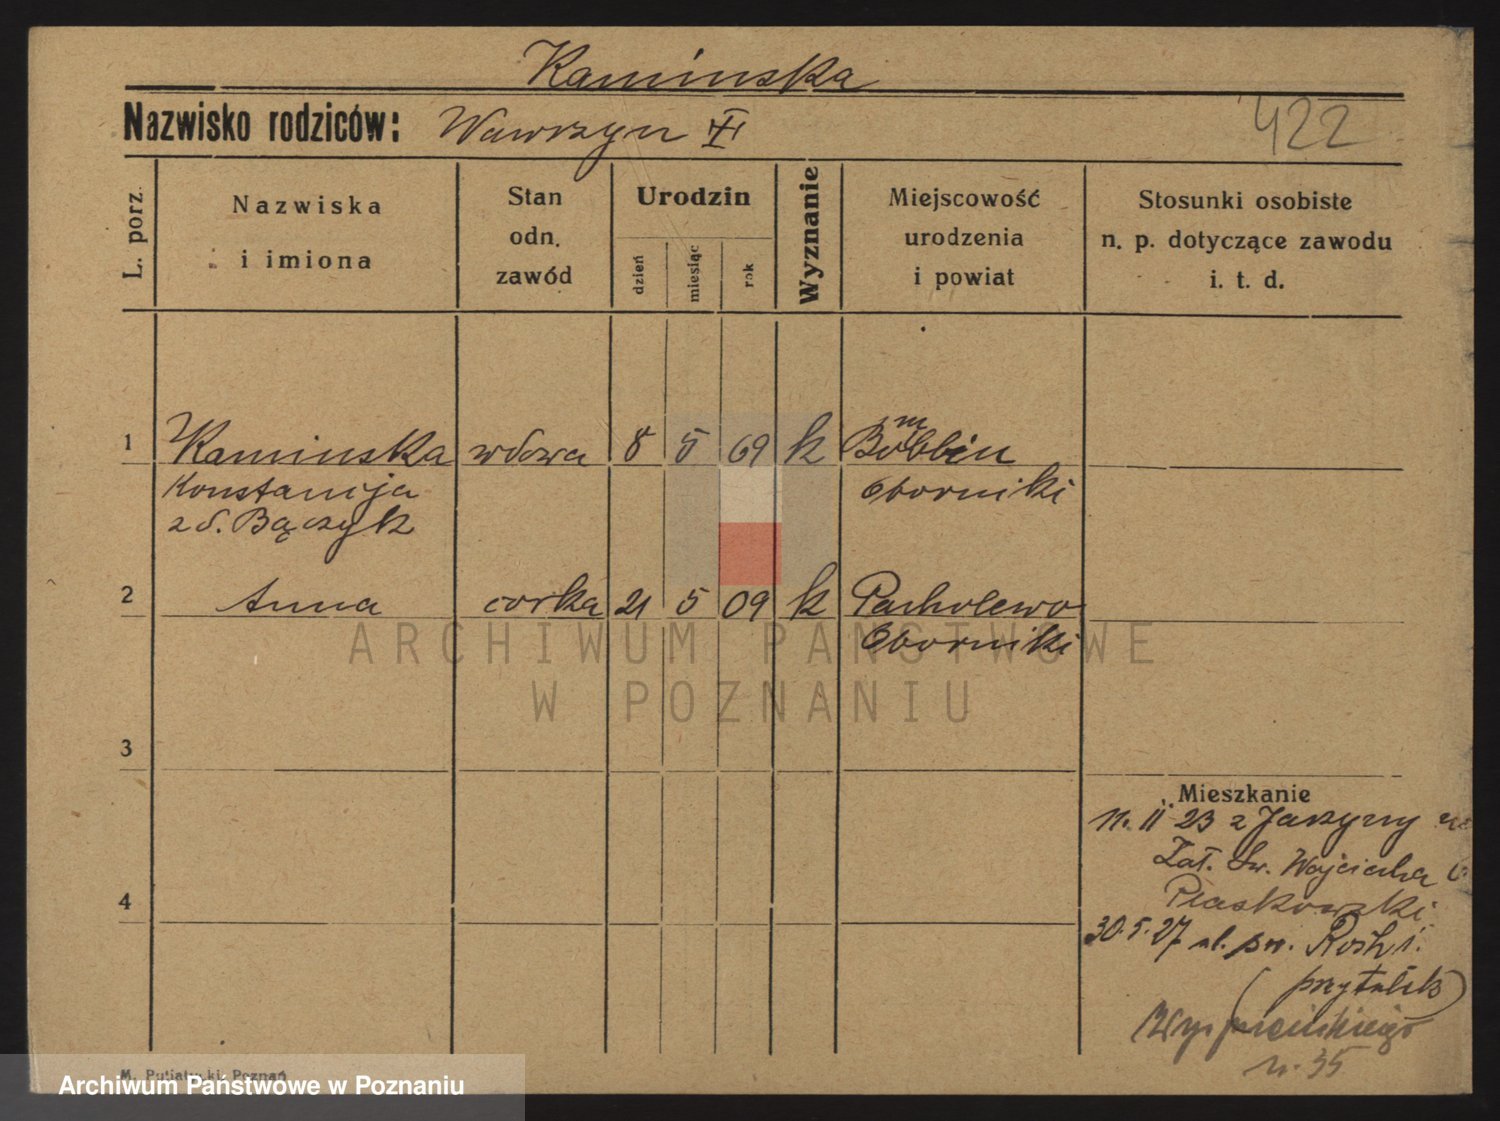 Kaminska
Nazwisko rodziców: Wawrzyn
422
L. porz.
Nazwiska
i imiona
Stan
odn.
zawód
Urodzin
dzień
miesiąc
rok
Wyznanie
Miejscowość
urodzenia
i powiat
Stosunki osobiste
n. p. dotyczące zawodu
i. t. d.
1 Kaminska wdowa 8 5 69 k
Konstancja Oborniki
z d. Bączyk
2 Anna corka 21 5 09 k Pacholewo
Oborniki
ARCHIWUM PAŃSTWOWE
W POZNANIU
3
4
Mieszkanie
11. II 23 z
Zał. Św. Wojciecha
Piaskowski
30. 5. 27 ul.
(przytulek)
n. 35
M. Putiatycki, Poznań
Archiwum Państwowe w Poznaniu